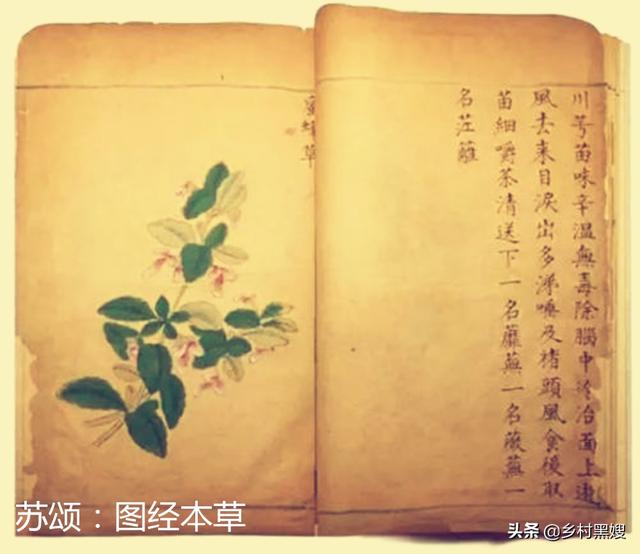 川芎苗味辛溫無毒除腦中冷冶面上遊
風去来目淚出多涕唾及楮頭風食後取
苗細嚼茶清送下一名蘼蕪一名薇蕪一
名茳蘺
蜜蜂草
苏颂：图经本草
头条 @乡村黑嫂